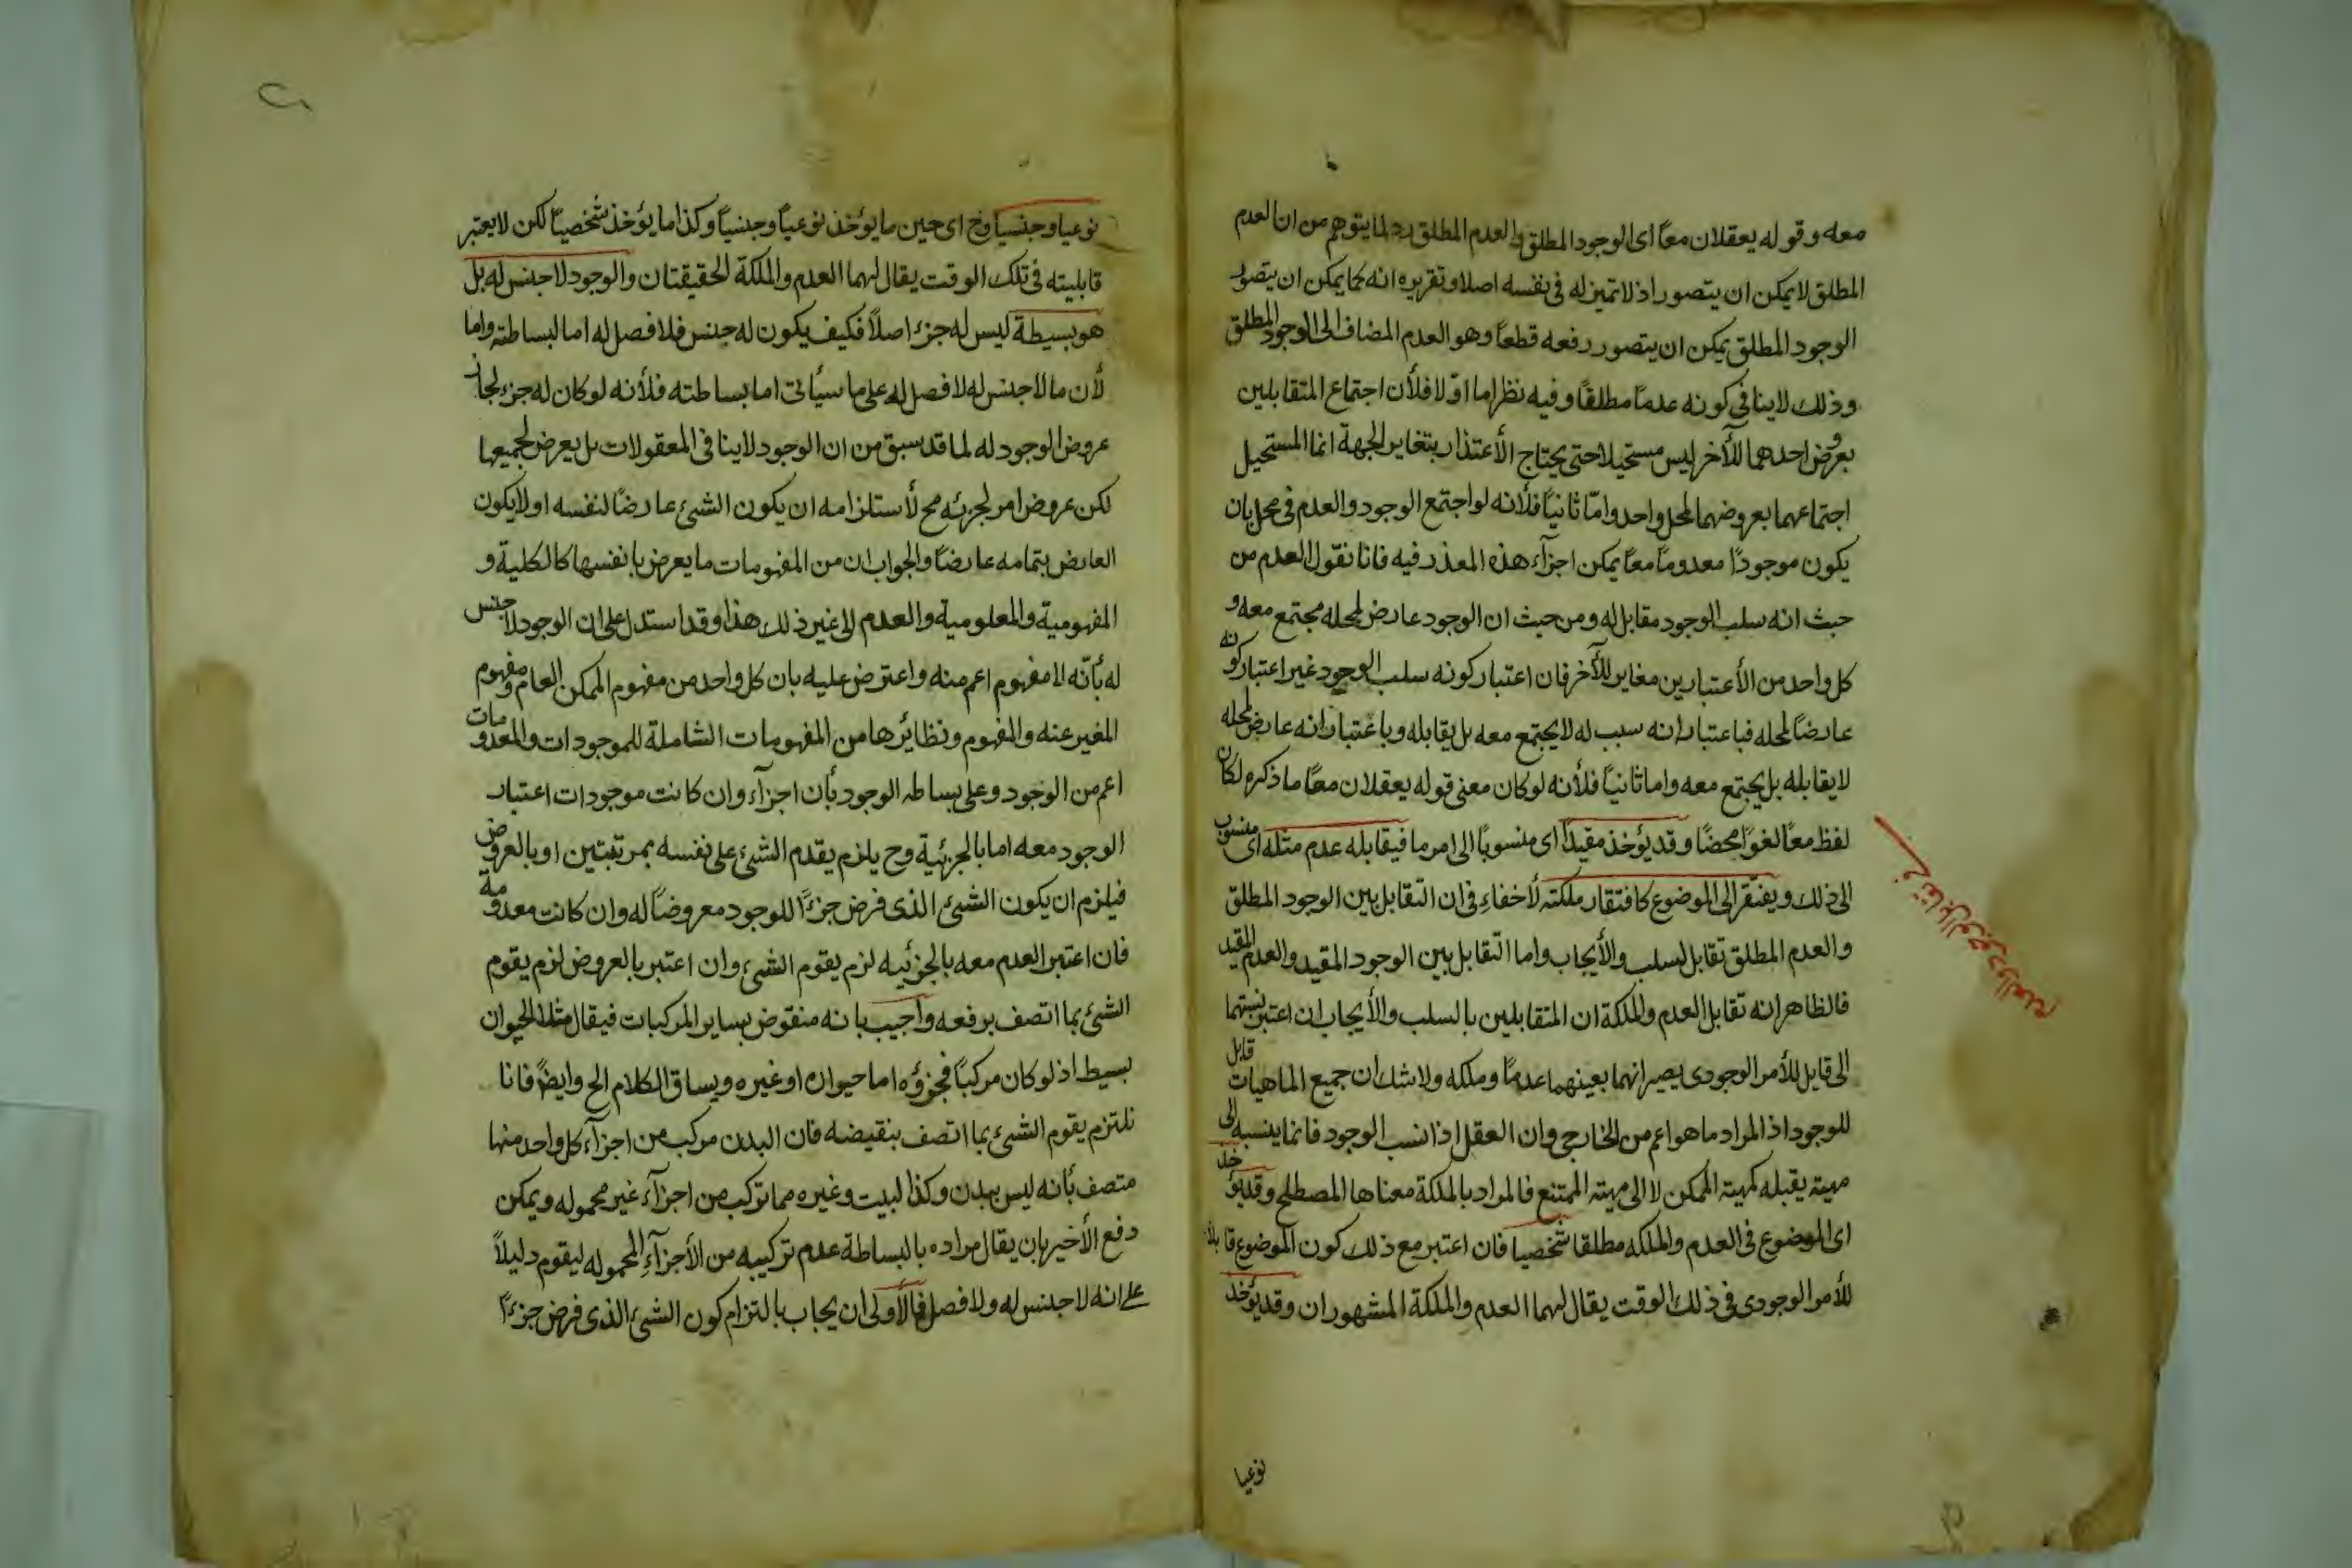 معه وقوله يعقلان معاً اى الوجود المطلق والعدم المطلق رد لما يتوهم من ان العدم
المطلق لا يمكن ان يتصور اذ لا تميز له فى نفسه اصلا وتقريره انه كما يمكن ان يتصور
الوجود المطلق يمكن ان يتصور رفعه قطعاً وهو العدم المضاف الى الوجود المطلق
وذلك لا ينافى كونه عدماً مطلقاً وفيه نظر اما اوّلا فلأن اجتماع المتقابلين
بعروض احدهما للأخر ليس مستحيلا حتى يحتاج الأعتذار بتغاير الجهة انما المستحيل
اجتماعهما بعروضهما لمحل واحد وامّا ثانياً فلأنه لو اجتمع الوجود والعدم فى محل بان
يكون موجودًا معدوماً معاً يمكن اجزآء هذه المعذر فيه فانا نقول العدم من
حيث انه سلب الوجود مقابل له ومن حيث ان الوجود عارض لمحله مجتمع معه و
كل واحد من الأعتبارين مغاير للأخر فان اعتبار كونه سلب الوجود غير اعتبار كونه
عارضاً لمحله فباعتبار انه سبب له لا يجتمع معه بل يقابله وباعتبار انه عارض لمحله
لا يقابله بل يجتمع معه واما ثانياً فلأنه لو كان معنى قوله يعقلان معاً ما ذكره لكان
لفظ معاً لغوًا محضًا وقد يؤخذ مقيداً اى منسوباً الى امر ما فيقابله عدم مثله اى منسوب
الى ذلك ويفتقر الى الموضوع كافتقار ملكته لأخفاء فى ان التقابل بين الوجود المطلق
والعدم المطلق تقابل السلب والأيجاب واما التقابل بين الوجود المقيد والعدم المقيد
فالظاهر انه تقابل العدم والملكة ان المتقابلين بالسلب والأيجاب ان اعتبر نسبتهما
الى قابل للأمر الوجودى يصير انهما بعينهما عدماً وملكه ولا شك ان جميع الماهيات قابل
للوجود اذ المراد ما هو اعم من الخارجى وان العقل اذا نسب الوجود فانما ينسبه الى
مهيته يقبله كمهيته الممكن لا الى مهيته الممتنع فالمراد بالملكة معناها المصطلح وقد يؤخذ
اى الموضوع فى العدم والملكه مطلقا شخصيا فان اعتبر مع ذلك كون الموضوع قابلا
للأمر الوجودى فى ذلك الوقت يقال لهما العدم والملكة المشهوران وقد يؤخذ
نوعيا
فى تقابل الوجود والعدم
نوعيا وجنسيا وح اى حين ما يؤخذ نوعياً وجنسياً وكذا ما يؤخذ شخصياً لكن لا يعتبر
قابليته فى تلك الوقت يقال لهما العدم والملكة الحقيقتان والوجود لا جنس له بل
هو بسيطة ليس له جزء اصلاً فكيف يكون له جنس فلا فصل له اما لبساطته واما
لأن ما لا جنس له لا فصل له على ما سيأتى اما بساطته فلأنه لو كان له جزء لجاز
عروض الوجود له لما قد سبق من ان الوجود لا ينافى المعقولات بل يعرض لجميعها
لكن عروض امر لجزئه مح لأستلزامه ان يكون الشئ عارضاً لنفسه او لا يكون
العارض بتمامه عارضاً والجواب ان من المفهومات ما يعرض بانفسها كالكلية و
المفهومية والمعلومية والعدم الى غير ذلك هذا وقد استدل على ان الوجود لا جنس
له بأنّه لا مفهوم اعم منه واعترض عليه بان كل واحد من مفهوم الممكن العام ومفهوم
المغير عنه والمفهوم ونظائرها من المفهومات الشاملة للموجودات والمعدومات
اعم من الوجود وعلى بساطه الوجود بأن اجزآءه وان كانت موجودات اعتبار
الوجود معه اما بالجزئية وح يلزم يقدم الشئ على نفسه بمرتبتين او بالعروض
فيلزم ان يكون الشئ الذى فرض جزءًا للوجود معروضاً له وان كانت معدومة
فان اعتبر العدم معه بالجزئيه لزم يقوم الشئ وان اعتبر بالعروض لزم يقوم
الشئ بما اتصف برفعه واجيب بانه منقوض بساير المركبات فيقال مثلا الحيوان
بسيط اذ لو كان مركباً فجزؤه اما حيوان او غيره ويساق الكلام الخ وايضاً فانا
نلتزم يقوم الشئ بما اتصف بنقيضه فان البدن مركب من اجزآء كل واحد منها
متصف بأنه ليس ببدن وكذا البيت وغيره مما تركب من اجزآء غير محموله ويمكن
دفع الأخير بان يقال مراده بالبساطة عدم تركيبه من الأجزآء المحموله ليقوم دليلاً
على انه لا جنس له ولا فصل فالأولى ان يجاب بالتزام كون الشئ الذى فرض جزءًا